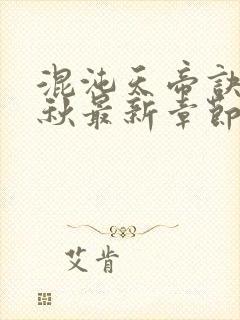 混沌天帝訣
秋最新章節
艾肯